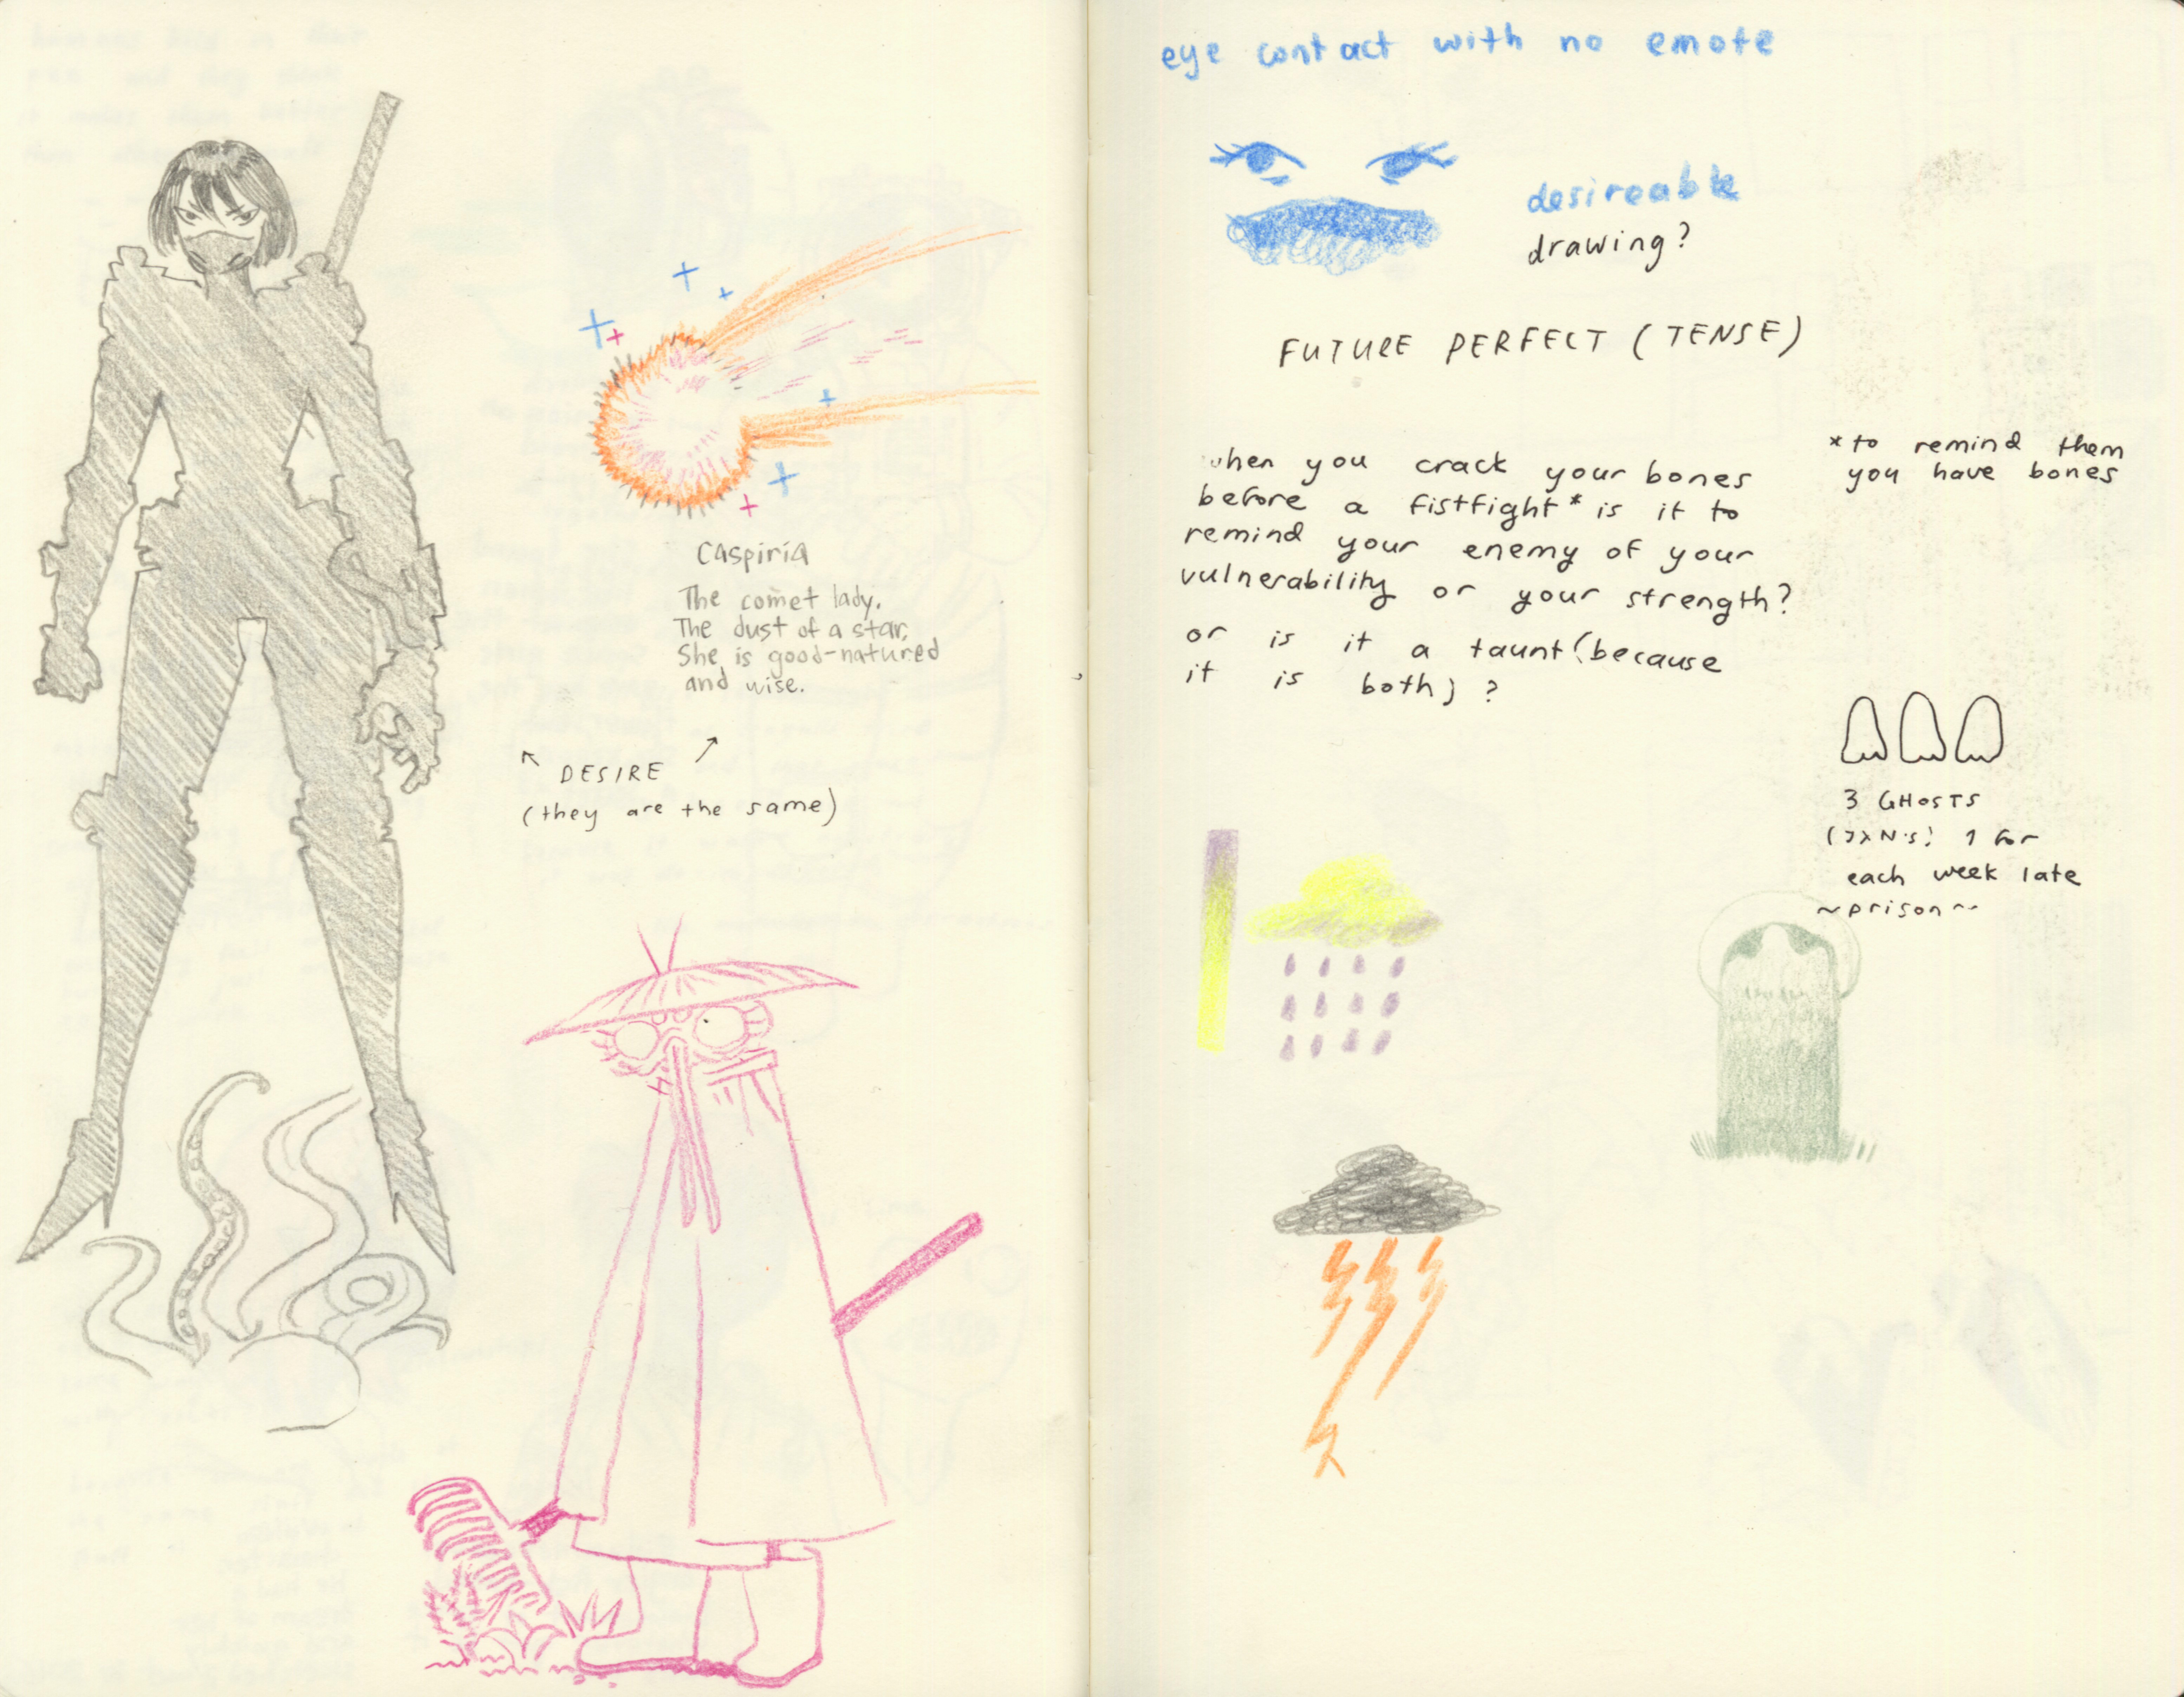 Caspiria
The comet lady.
The dust of a star,
She is good-natured
and wise.
DESIRE
(they are the same)
eye contact with no emote
desireable
drawing?
FUTURE PERFECT (TENSE)
when you crack your bones
before a fistfight* is it to
remind your enemy of your
vulnerability or your strength?
or is it a taunt (because
it is both) ?
* to remind them
you have bones
3 GHOSTS
1 for
each week late
~prison~